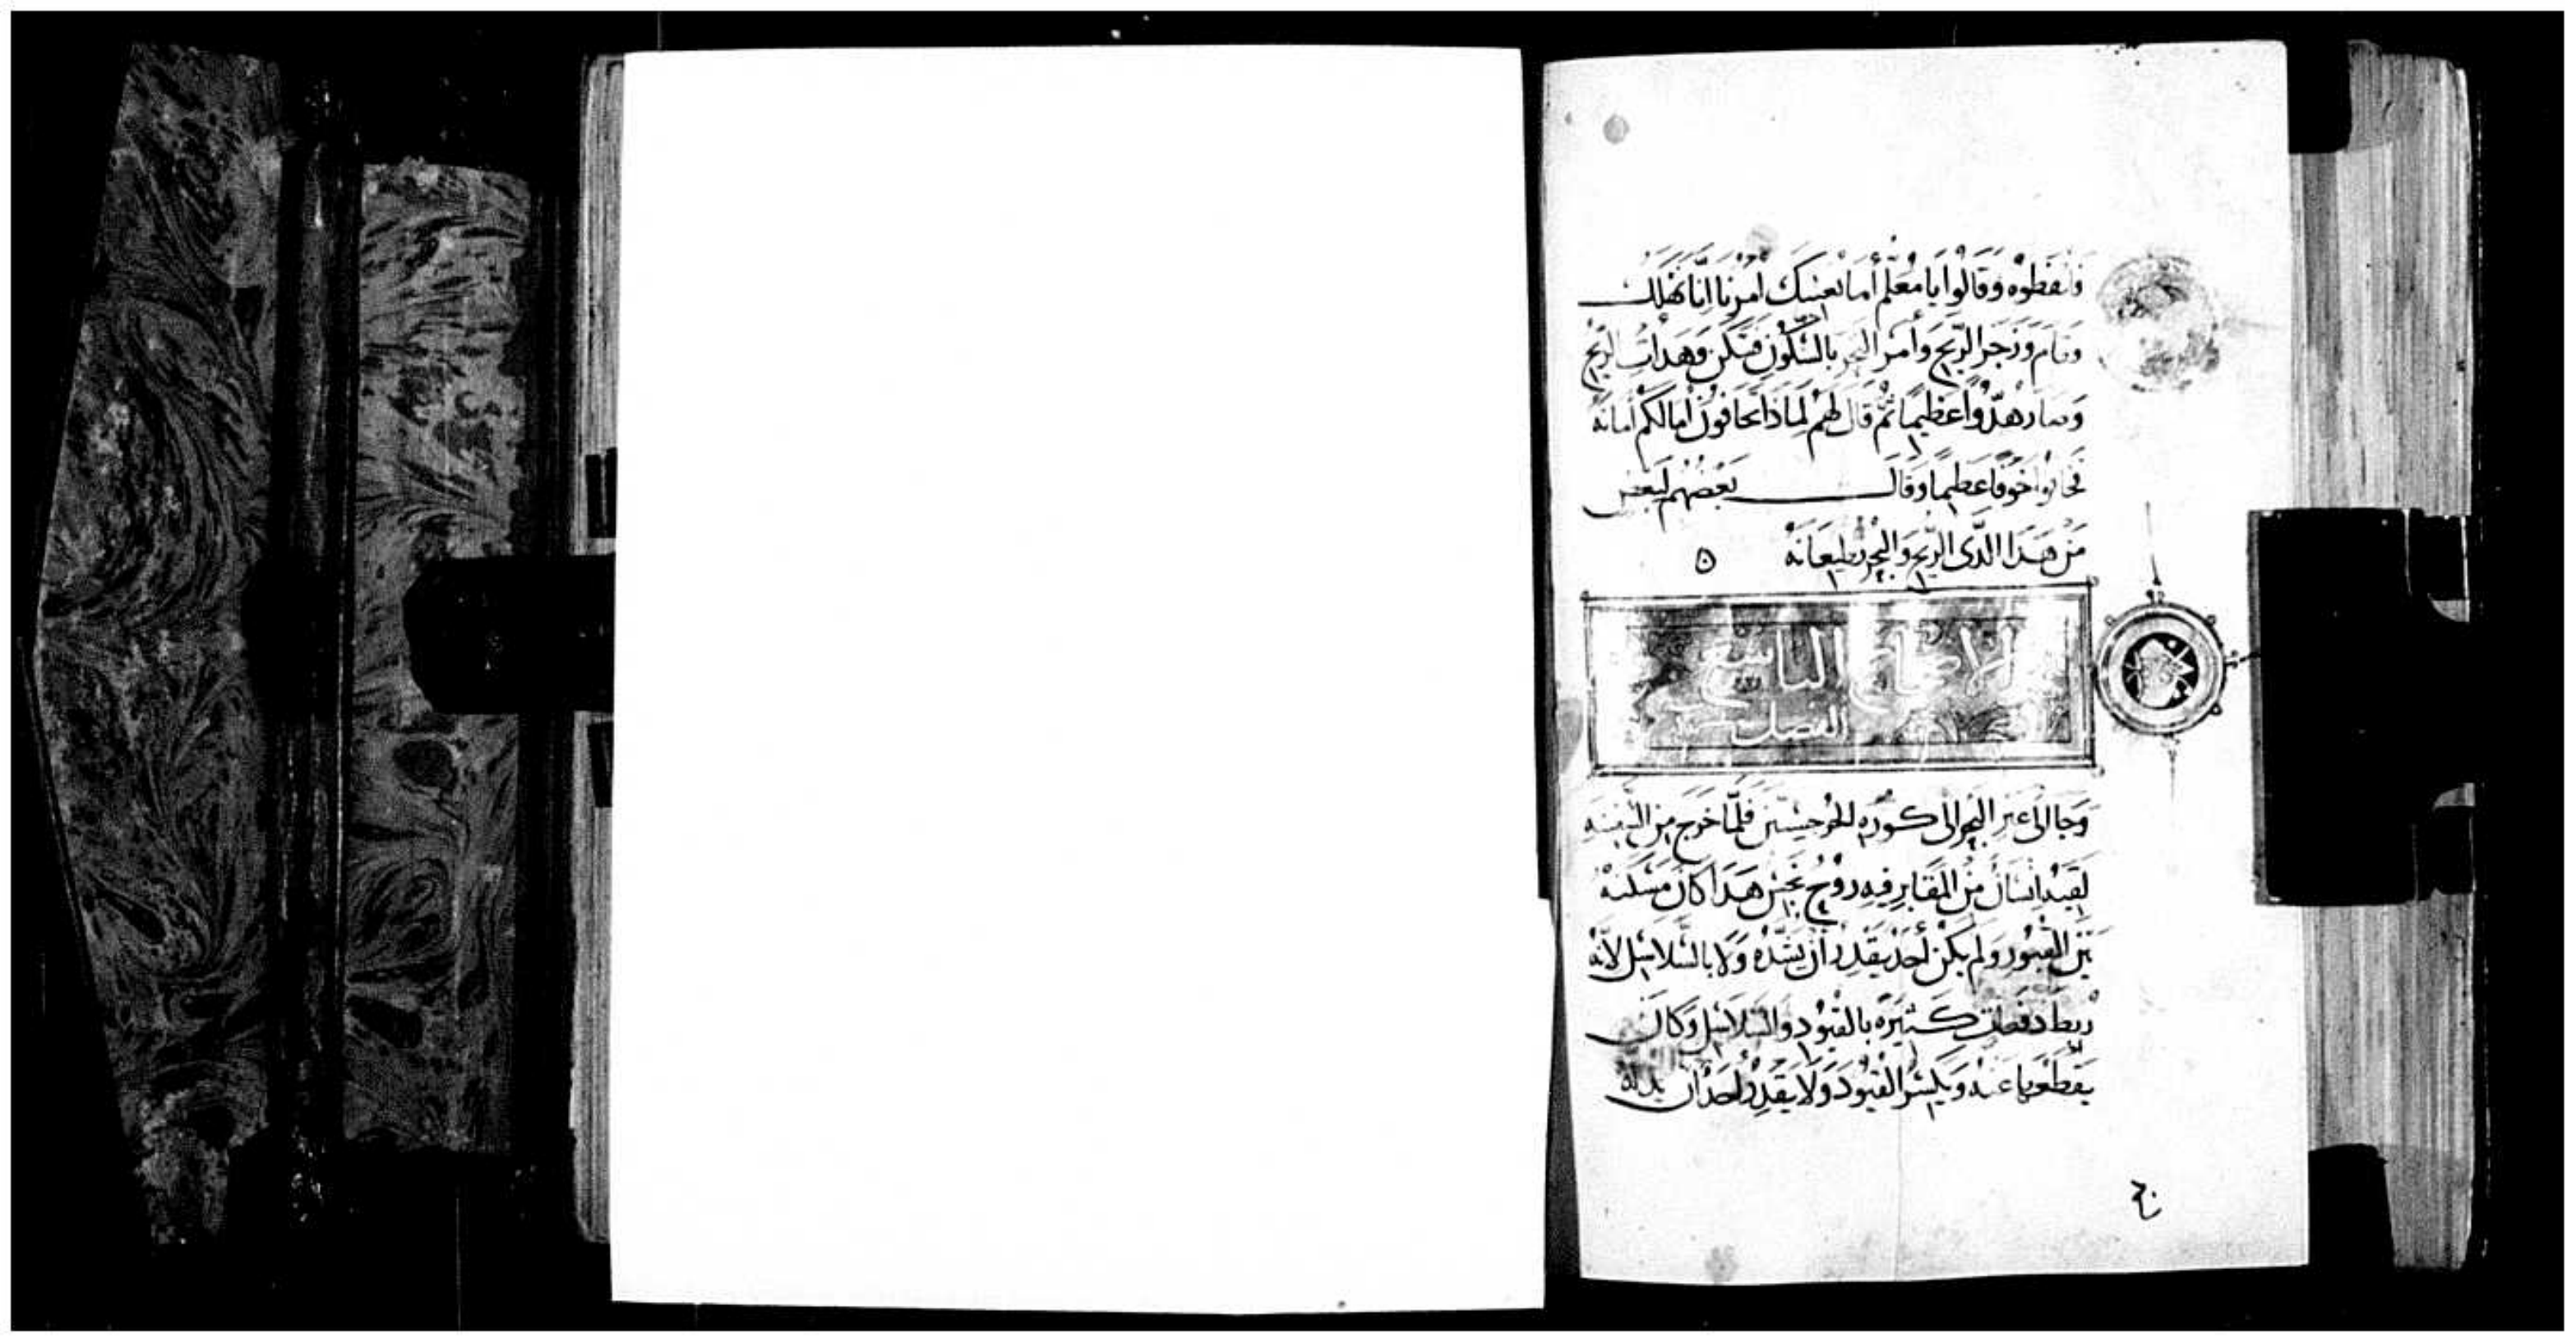 فأيقظوه وقالوا يا معلم أما يعنيك أمرنا إننا نهلك
وقام وزجر الريح وأمر البحر بالسكون فسكن وهدأت الريح
وصار هدوا عظيما ثم قال لهم لماذا تخافون أما لكم أمانه
فخافوا خوفا عظيما وقال بعضهم لبعض
من هدا الدى الريح والبحر يطيعانه
الاصحاح التاسع
الفصل
وجا الى عبر البحر الى كورة الجرجسيين فلما خرج من السفينه
لقيه انسان من المقابر فيه روح نجس هدا كان مسكنه
بين القبور ولم يكن أحد يقدر أن يشده ولا بالسلاسل لأنه
ربط دفعات كتيره بالقيود والسلاسل وكان
يقطعها عنه ويكسر القيود ولا يقدر أحد ان يدلله